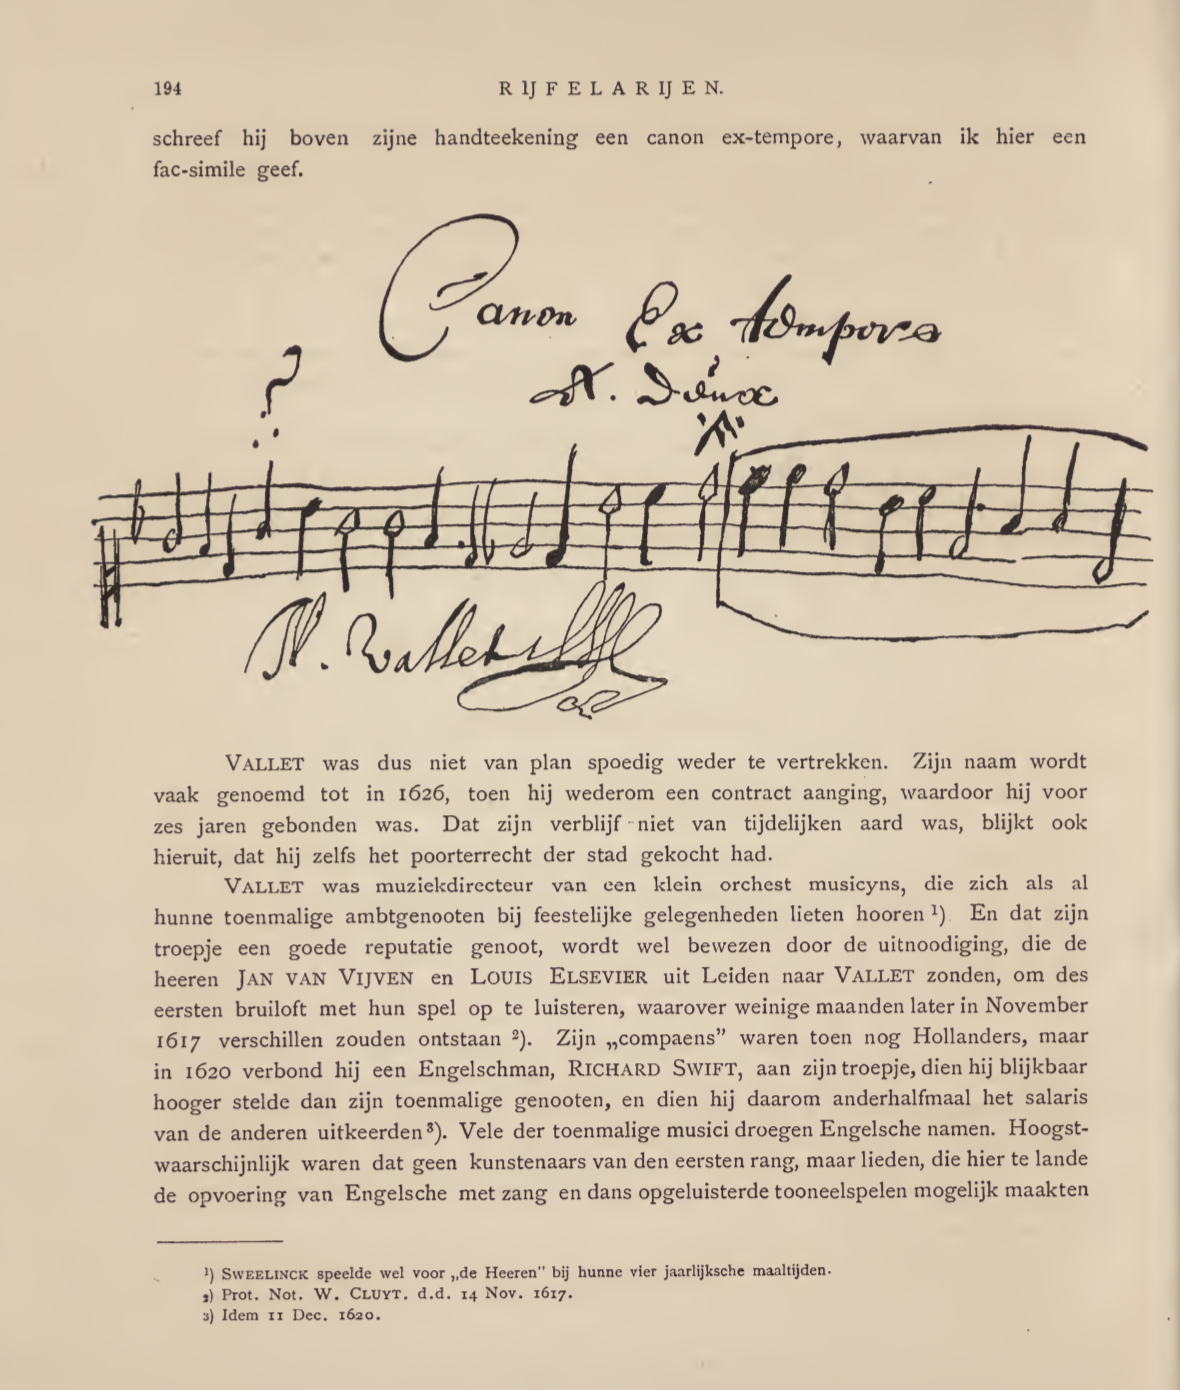 194
RIJFELARIJEN.
schreef hij boven zijne handteekening een canon ex-tempore, waarvan ik hier een
fac-simile geef.
Canon Ex tempore
A. Deux
N. Vallet
VALLET was dus niet van plan spoedig weder te vertrekken. Zijn naam wordt
vaak genoemd tot in 1626, toen hij wederom een contract aanging, waardoor hij voor
zes jaren gebonden was. Dat zijn verblijf niet van tijdelijken aard was, blijkt ook
hieruit, dat hij zelfs het poorterrecht der stad gekocht had.
VALLET was muziekdirecteur van een klein orchest musicyns, die zich als al
hunne toenmalige ambtgenooten bij feestelijke gelegenheden lieten hooren ¹). En dat zijn
troepje een goede reputatie genoot, wordt wel bewezen door de uitnoodiging, die de
heeren JAN VAN VIJVEN en LOUIS ELSEVIER uit Leiden naar VALLET zonden, om des
eersten bruiloft met hun spel op te luisteren, waarover weinige maanden later in November
1617 verschillen zouden ontstaan ²). Zijn „compaens” waren toen nog Hollanders, maar
in 1620 verbond hij een Engelschman, RICHARD SWIFT, aan zijn troepje, dien hij blijkbaar
hooger stelde dan zijn toenmalige genooten, en dien hij daarom anderhalfmaal het salaris
van de anderen uitkeerden ³). Vele der toenmalige musici droegen Engelsche namen. Hoogst-
waarschijnlijk waren dat geen kunstenaars van den eersten rang, maar lieden, die hier te lande
de opvoering van Engelsche met zang en dans opgeluisterde tooneelspelen mogelijk maakten
¹) SWEELINCK speelde wel voor „de Heeren” bij hunne vier jaarlijksche maaltijden.
²) Prot. Not. W. CLUYT. d.d. 14 Nov. 1617.
³) Idem 11 Dec. 1620.